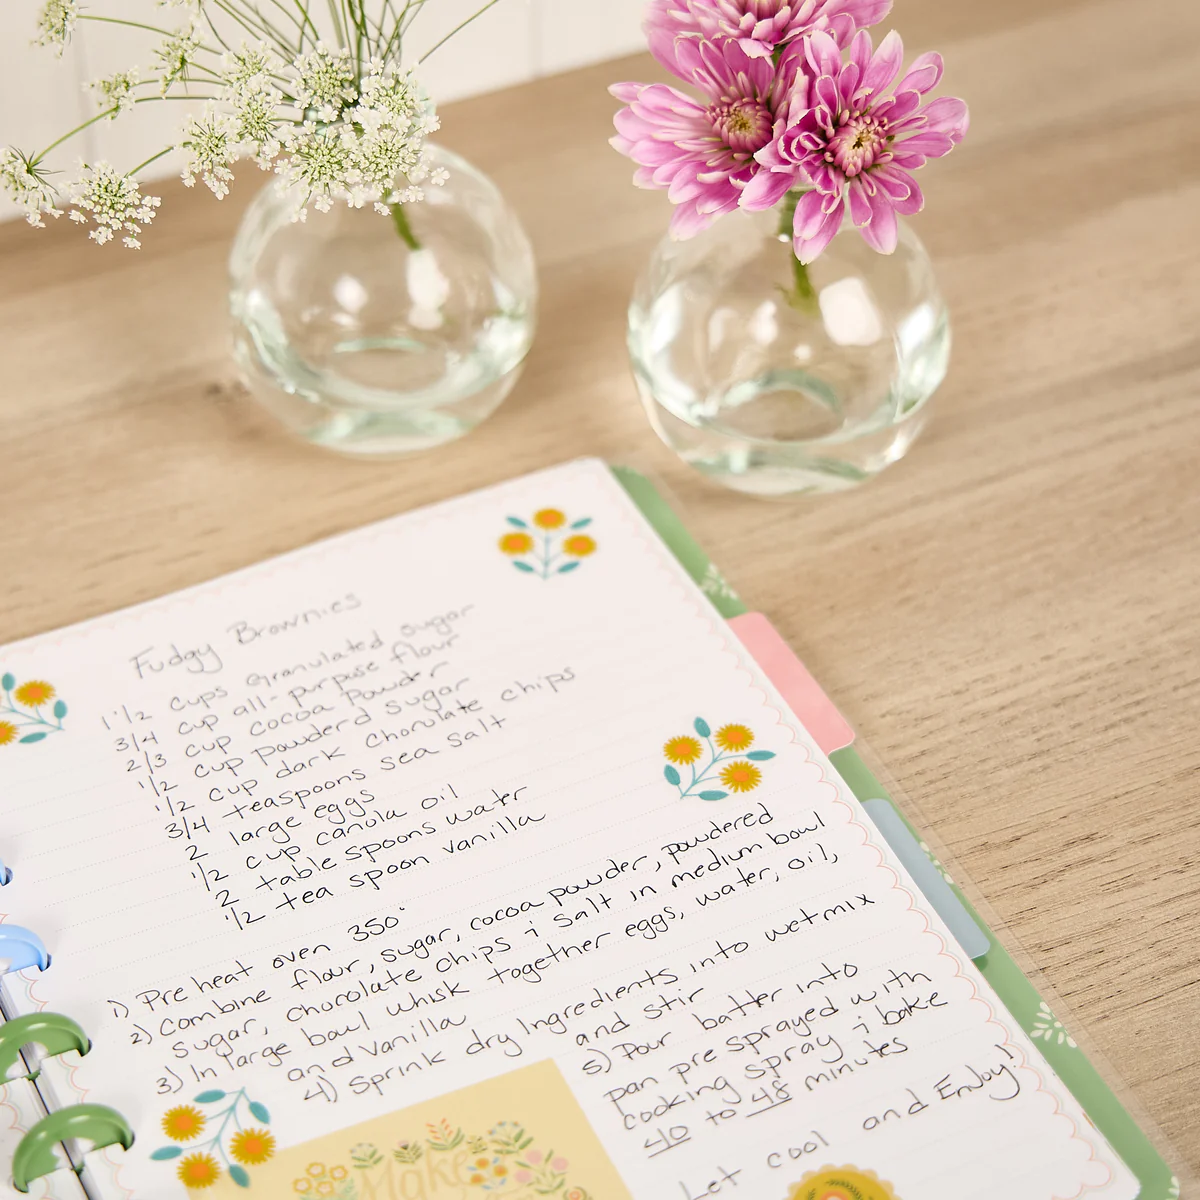 Fudgy Brownies
1 1/2 cups granulated sugar
3/4 cup all-purpose flour
2/3 cup cocoa powder
1/2 cup powderd sugar
1/2 cup dark chorulate chips
3/4 teaspoons sea salt
2 large eggs
1/2 cup canola oil
2 table spoons water
1/2 tea spoon vanilla
1) Pre heat oven 350°
2) Combine flour, sugar, cocoa powder, powdered
sugar, chorolate chips & salt in medium bowl
3) In large bowl whisk together eggs, water, oil,
and vanilla
4) Sprink dry Ingredients into wet mix
and stir
5) Pour batter into
pan pre sprayed with
cooking spray & bake
40 to 48 minutes
Let cool and Enjoy!
Make